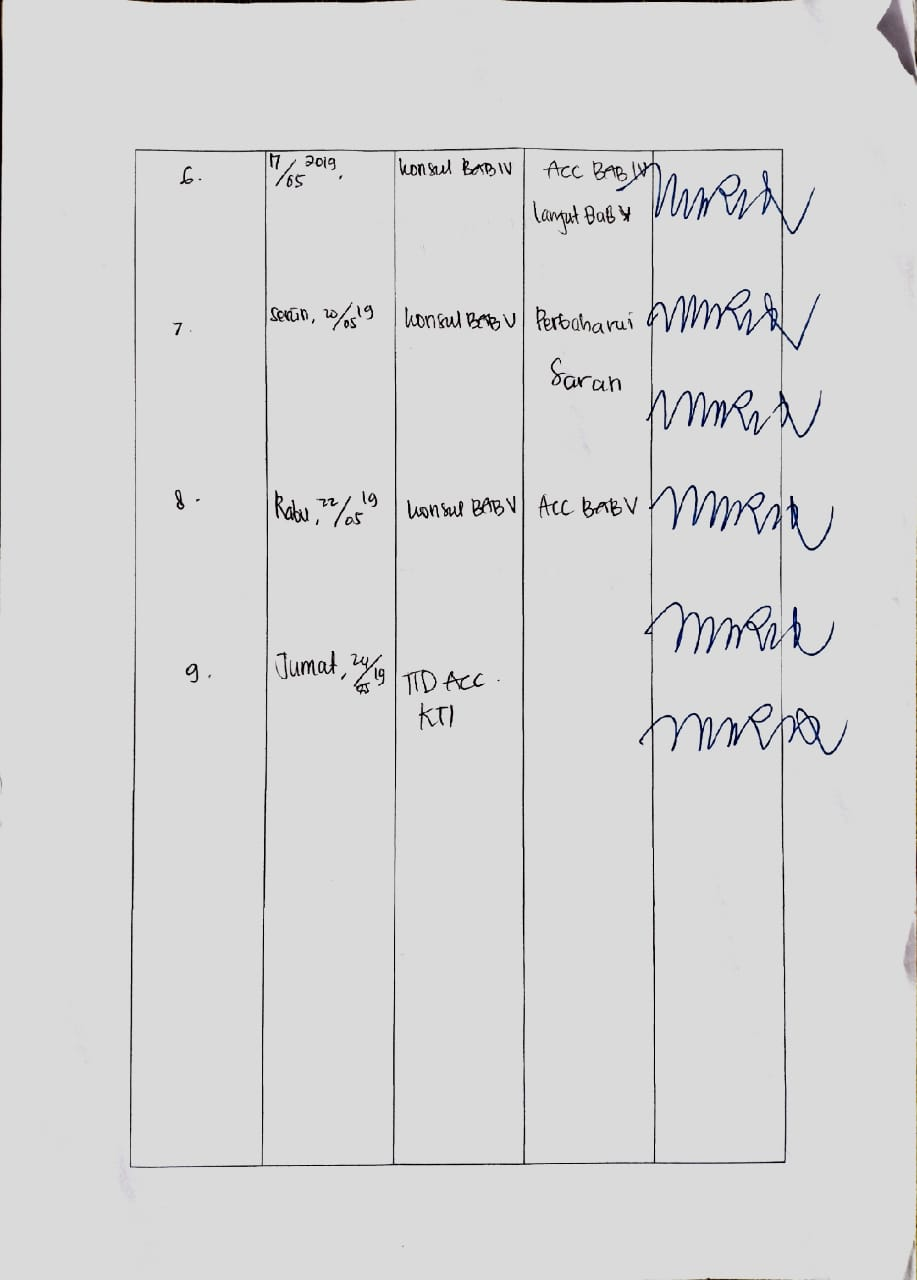 6.
17/05 2019.
Konsul BAB IV
ACC BAB IV
Lanjut BAB V
7.
Senin, 20/05 19
Konsul BAB V
Perbaharui
Saran
8.
Rabu, 22/05 19
Konsul BAB V
ACC BAB V
9.
Jumat, 24/05 19
TTD ACC.
KTI